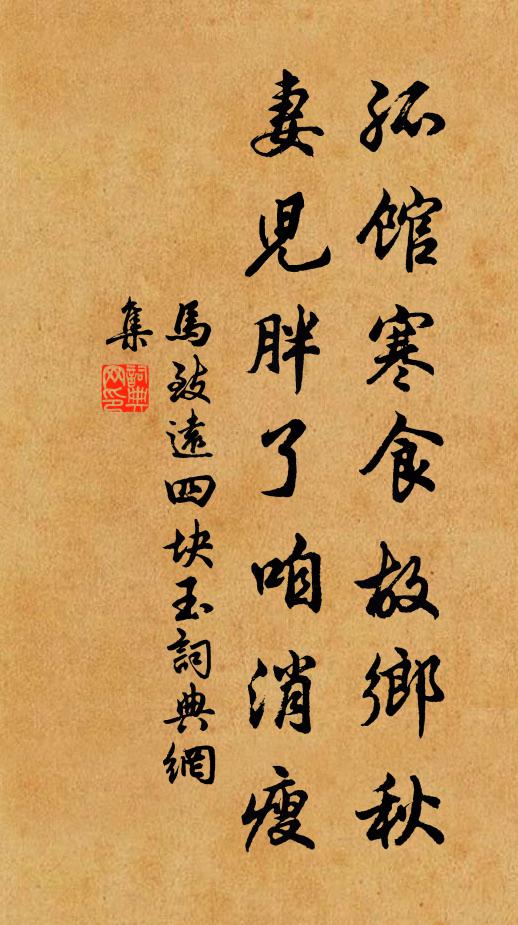 孤館寒食故鄉秋
妻兒胖了咱消瘦
馬致遠四块玉詞典網
集
詞典網印